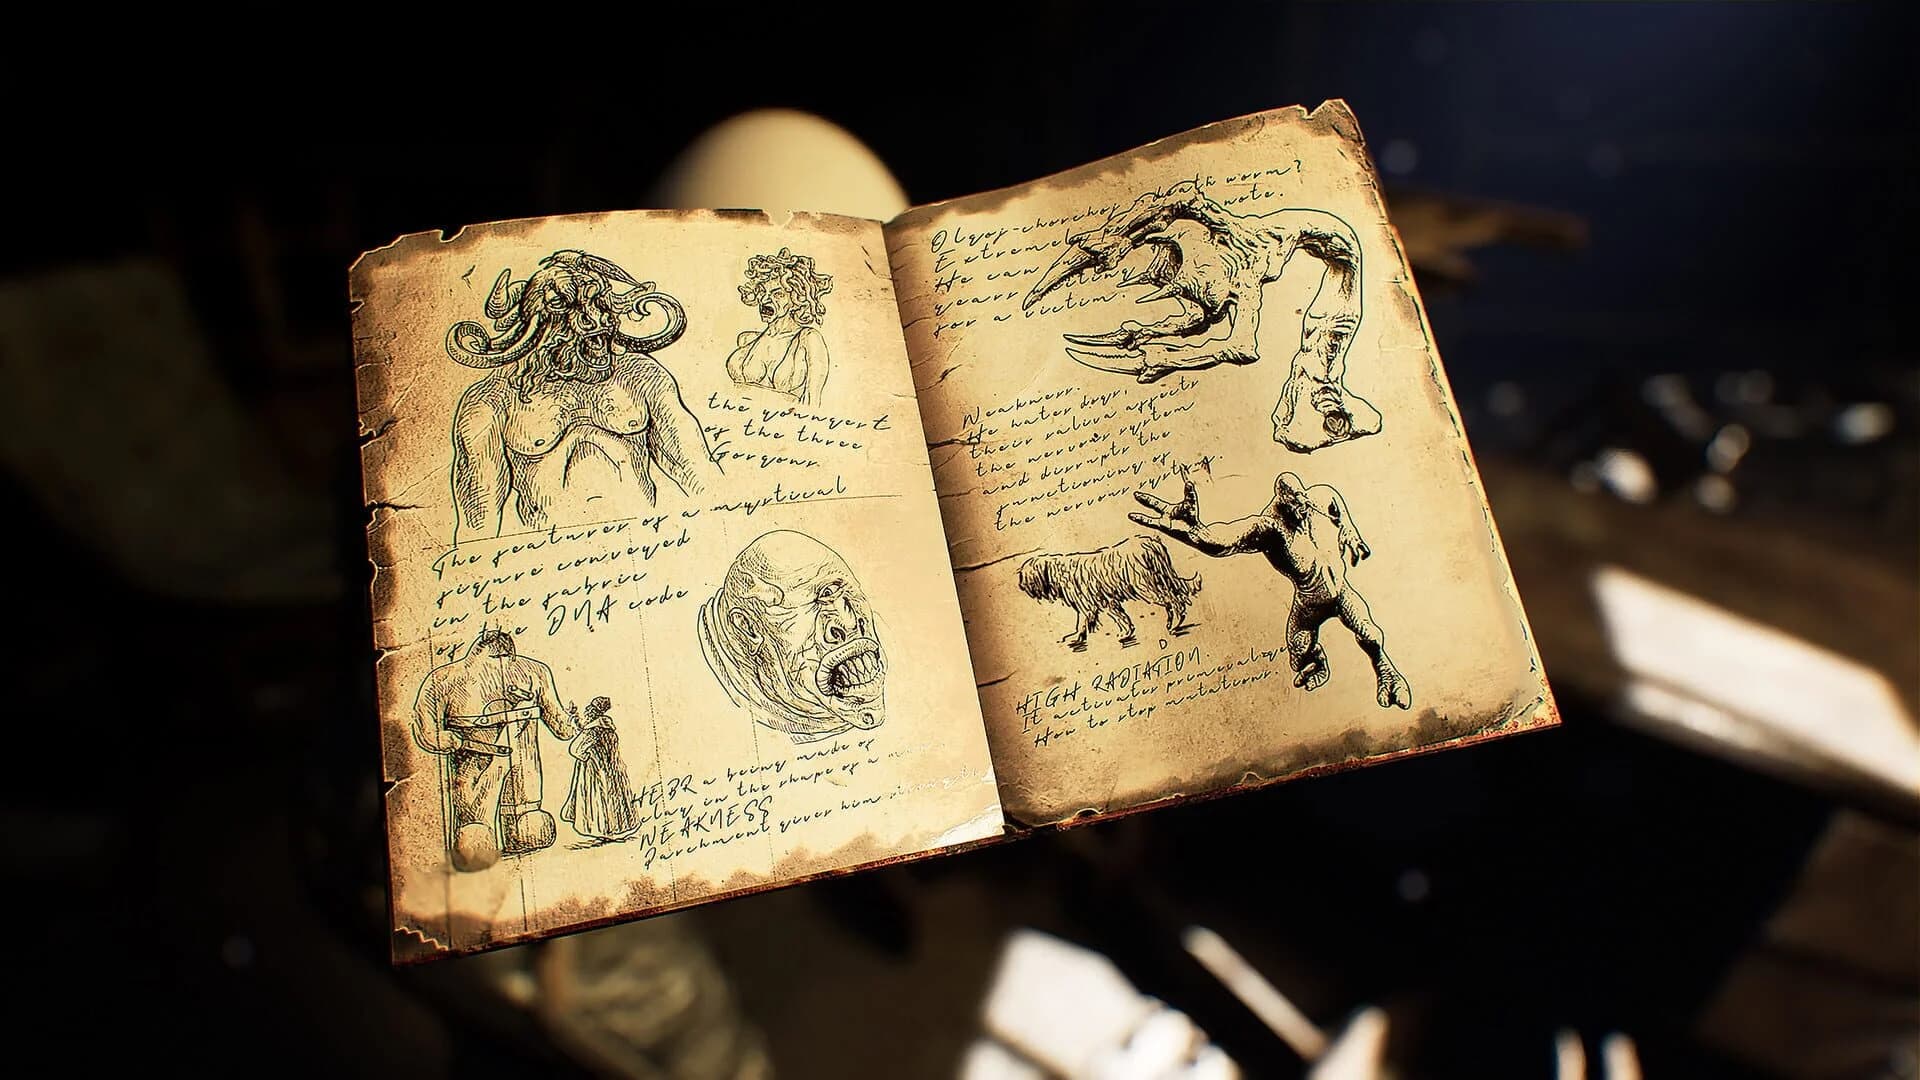 the youngest
of the three
Gorgons.
The features of a mystical
figure conveyed
in the fabric
of the DNA code
HEBR a being made of
clay in the shape of a
WEAKNESS
Parchment gives him
Olgoj-chorchoj death worm?
Extremely note.
He can
years
for a victim.
Weakness.
He hates dogs,
their saliva affects
the nervous system
and disrupts the
functioning of
the nervous system.
D
HIGH RADIATION.
It activates
How to stop mutations.